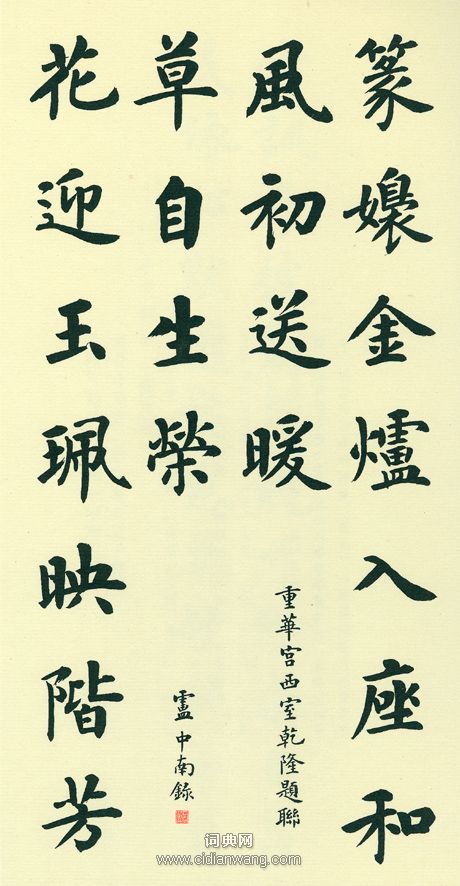 篆嬝金爐入座和
風初送暖
花迎玉珮映階芳
草自生榮
重華宫西室乾隆題聯
盧中南錄
词典网
www.cidianwang.com